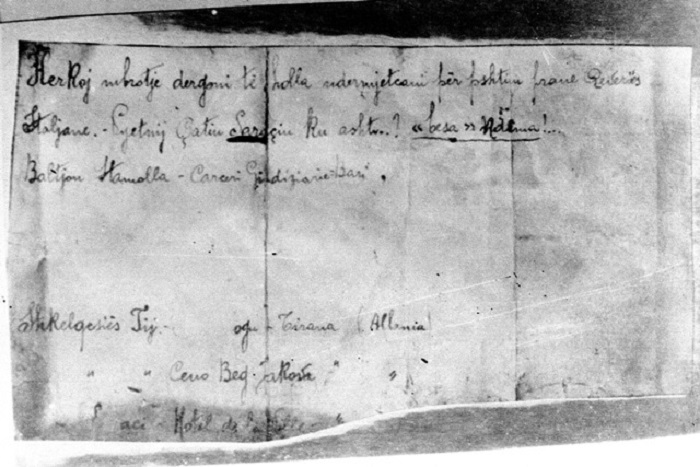 Herkoj mbrotje dergoni të holla ndermjetcani për pshtim pranë Qeverës
Italjane. - Pyetnij Çatin Saraçin ku asht...? «besa» Ndëma!...
Baltjon Stamolla - Carceri Giudiziarie-Bari.
Shkelqesiës Tij - ogu - Tirana (Albania)
" " Ceno Beg " "
aci - Hotel de "